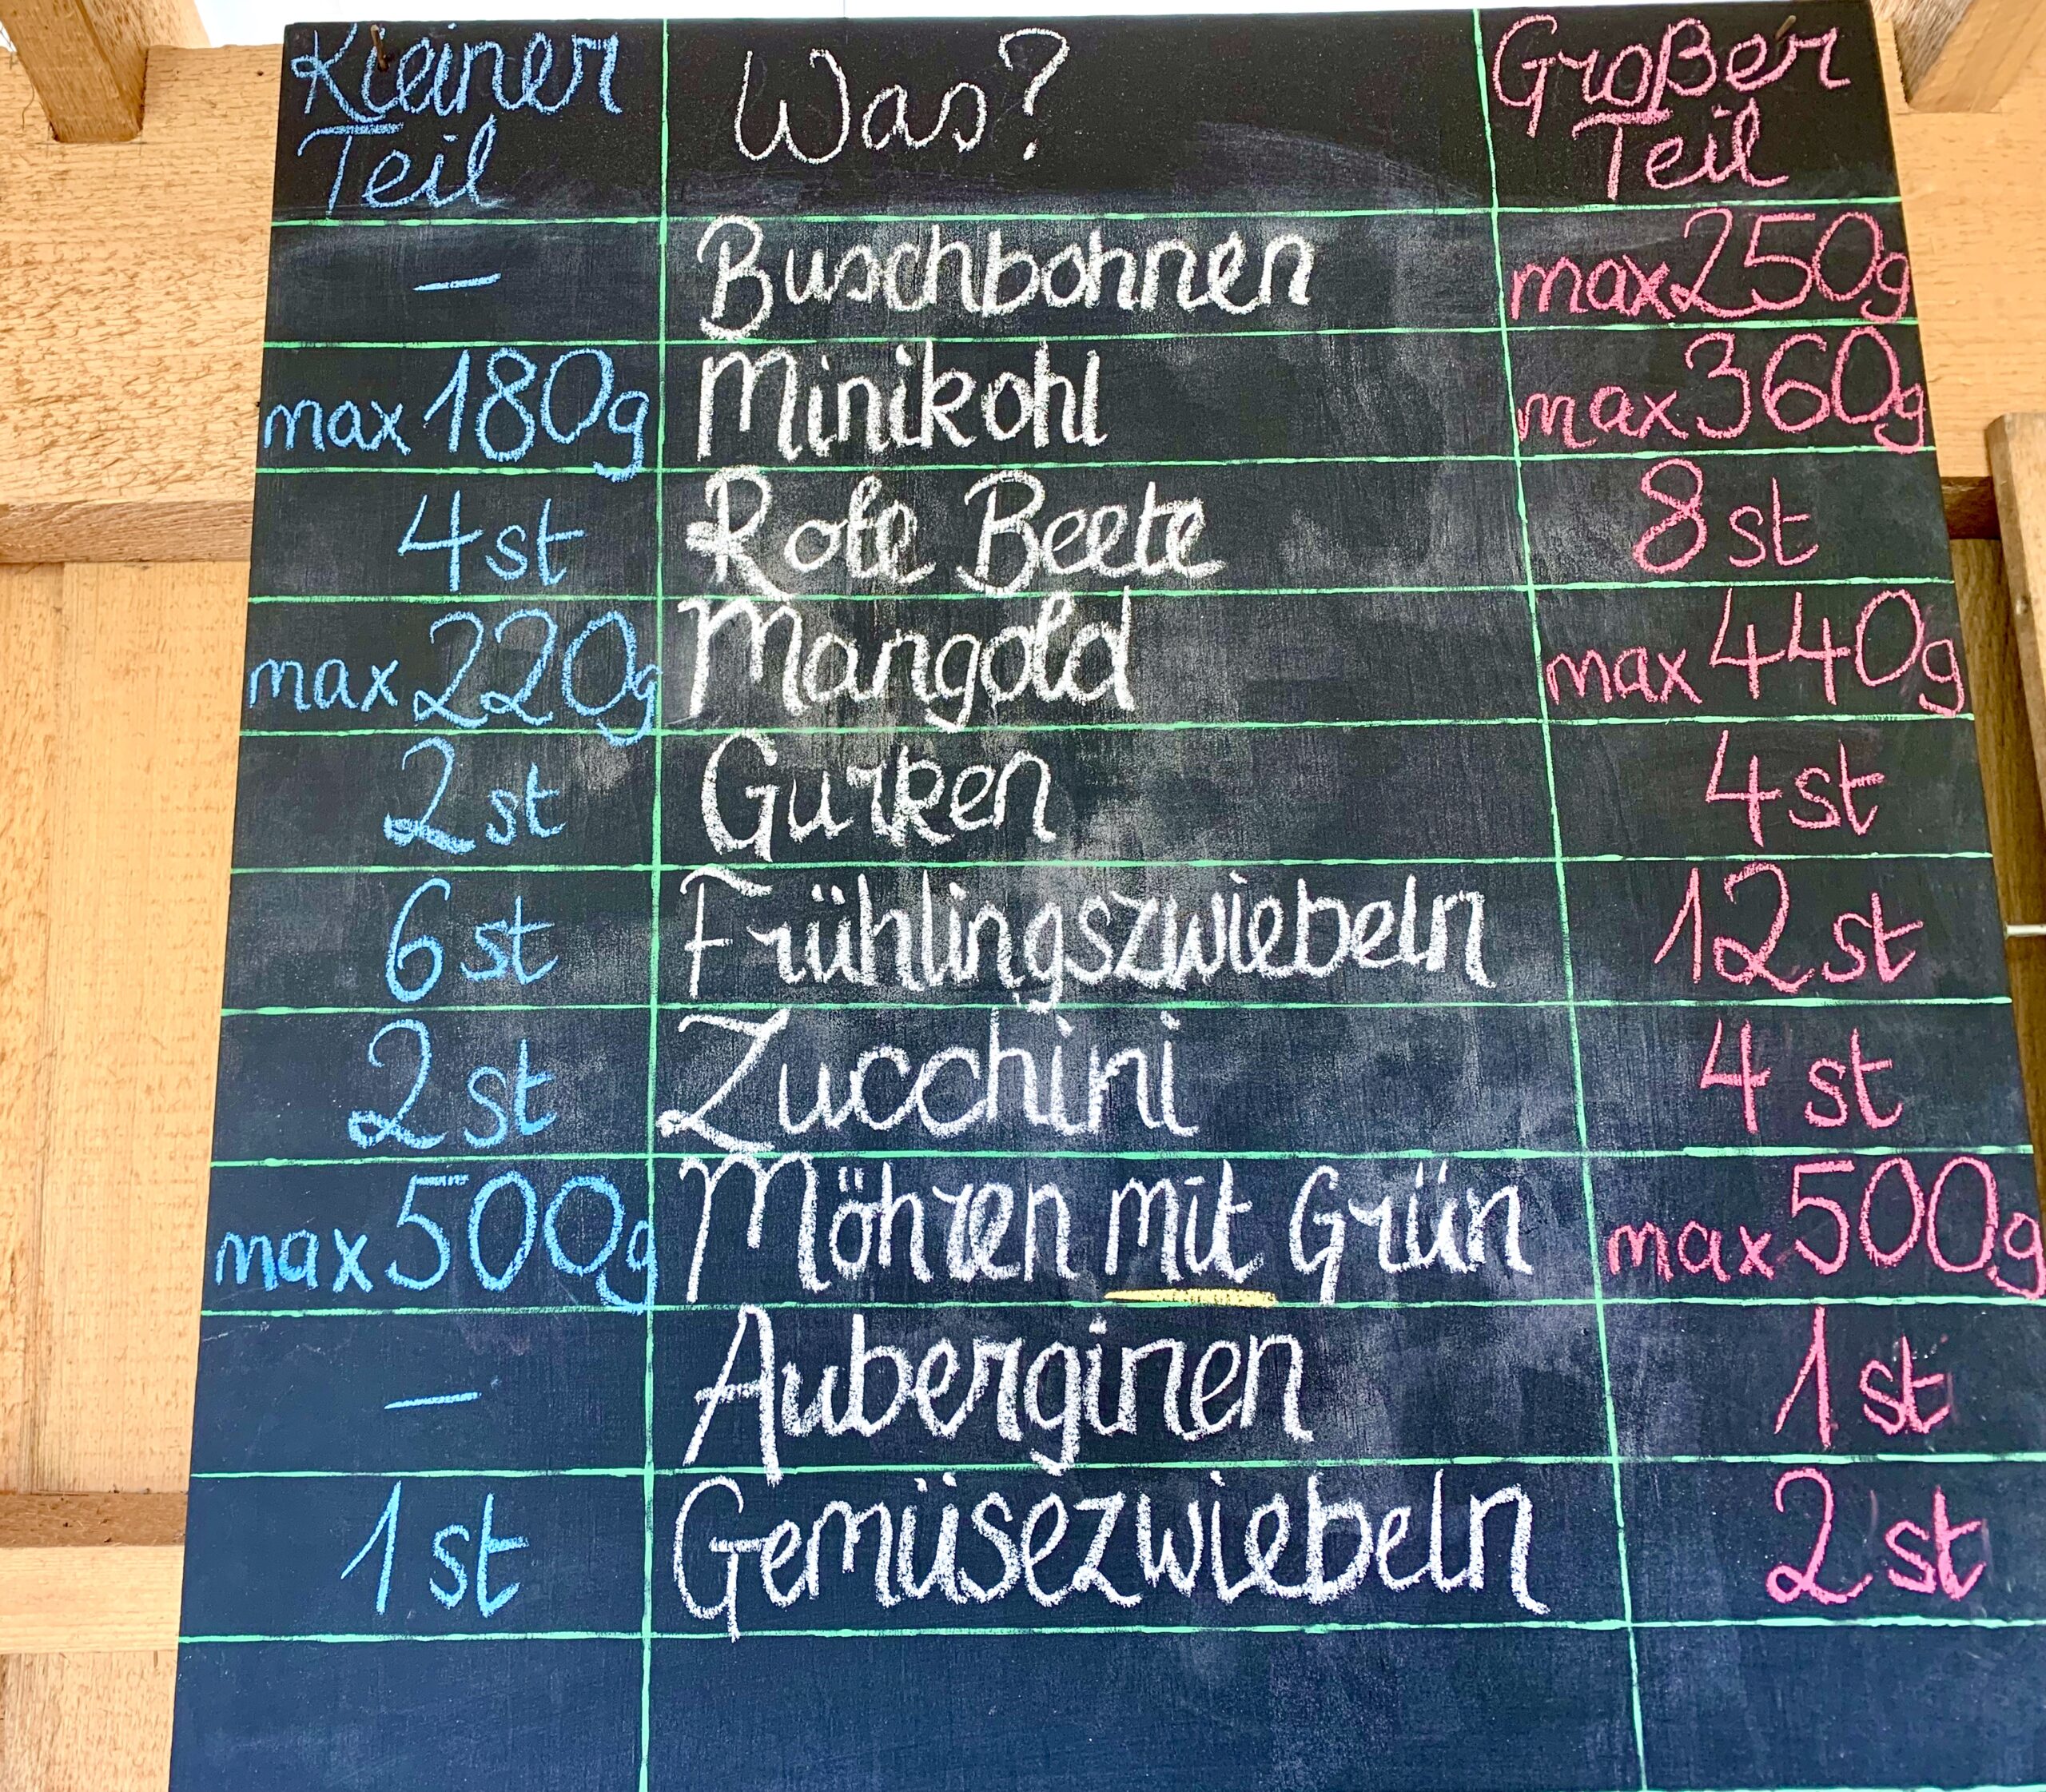 Kleiner Teil Was? Großer Teil
– Buschbohnen max 250g
max 180g Minikohl max 360g
4 st Rote Beete 8 st
max 220g Mangold max 440g
2 st Gurken 4 st
6 st Frühlingszwiebeln 12 st
2 st Zucchini 4 st
max 500g Möhren mit Grün max 500g
– Auberginen 1 st
1 st Gemüsezwiebeln 2 st